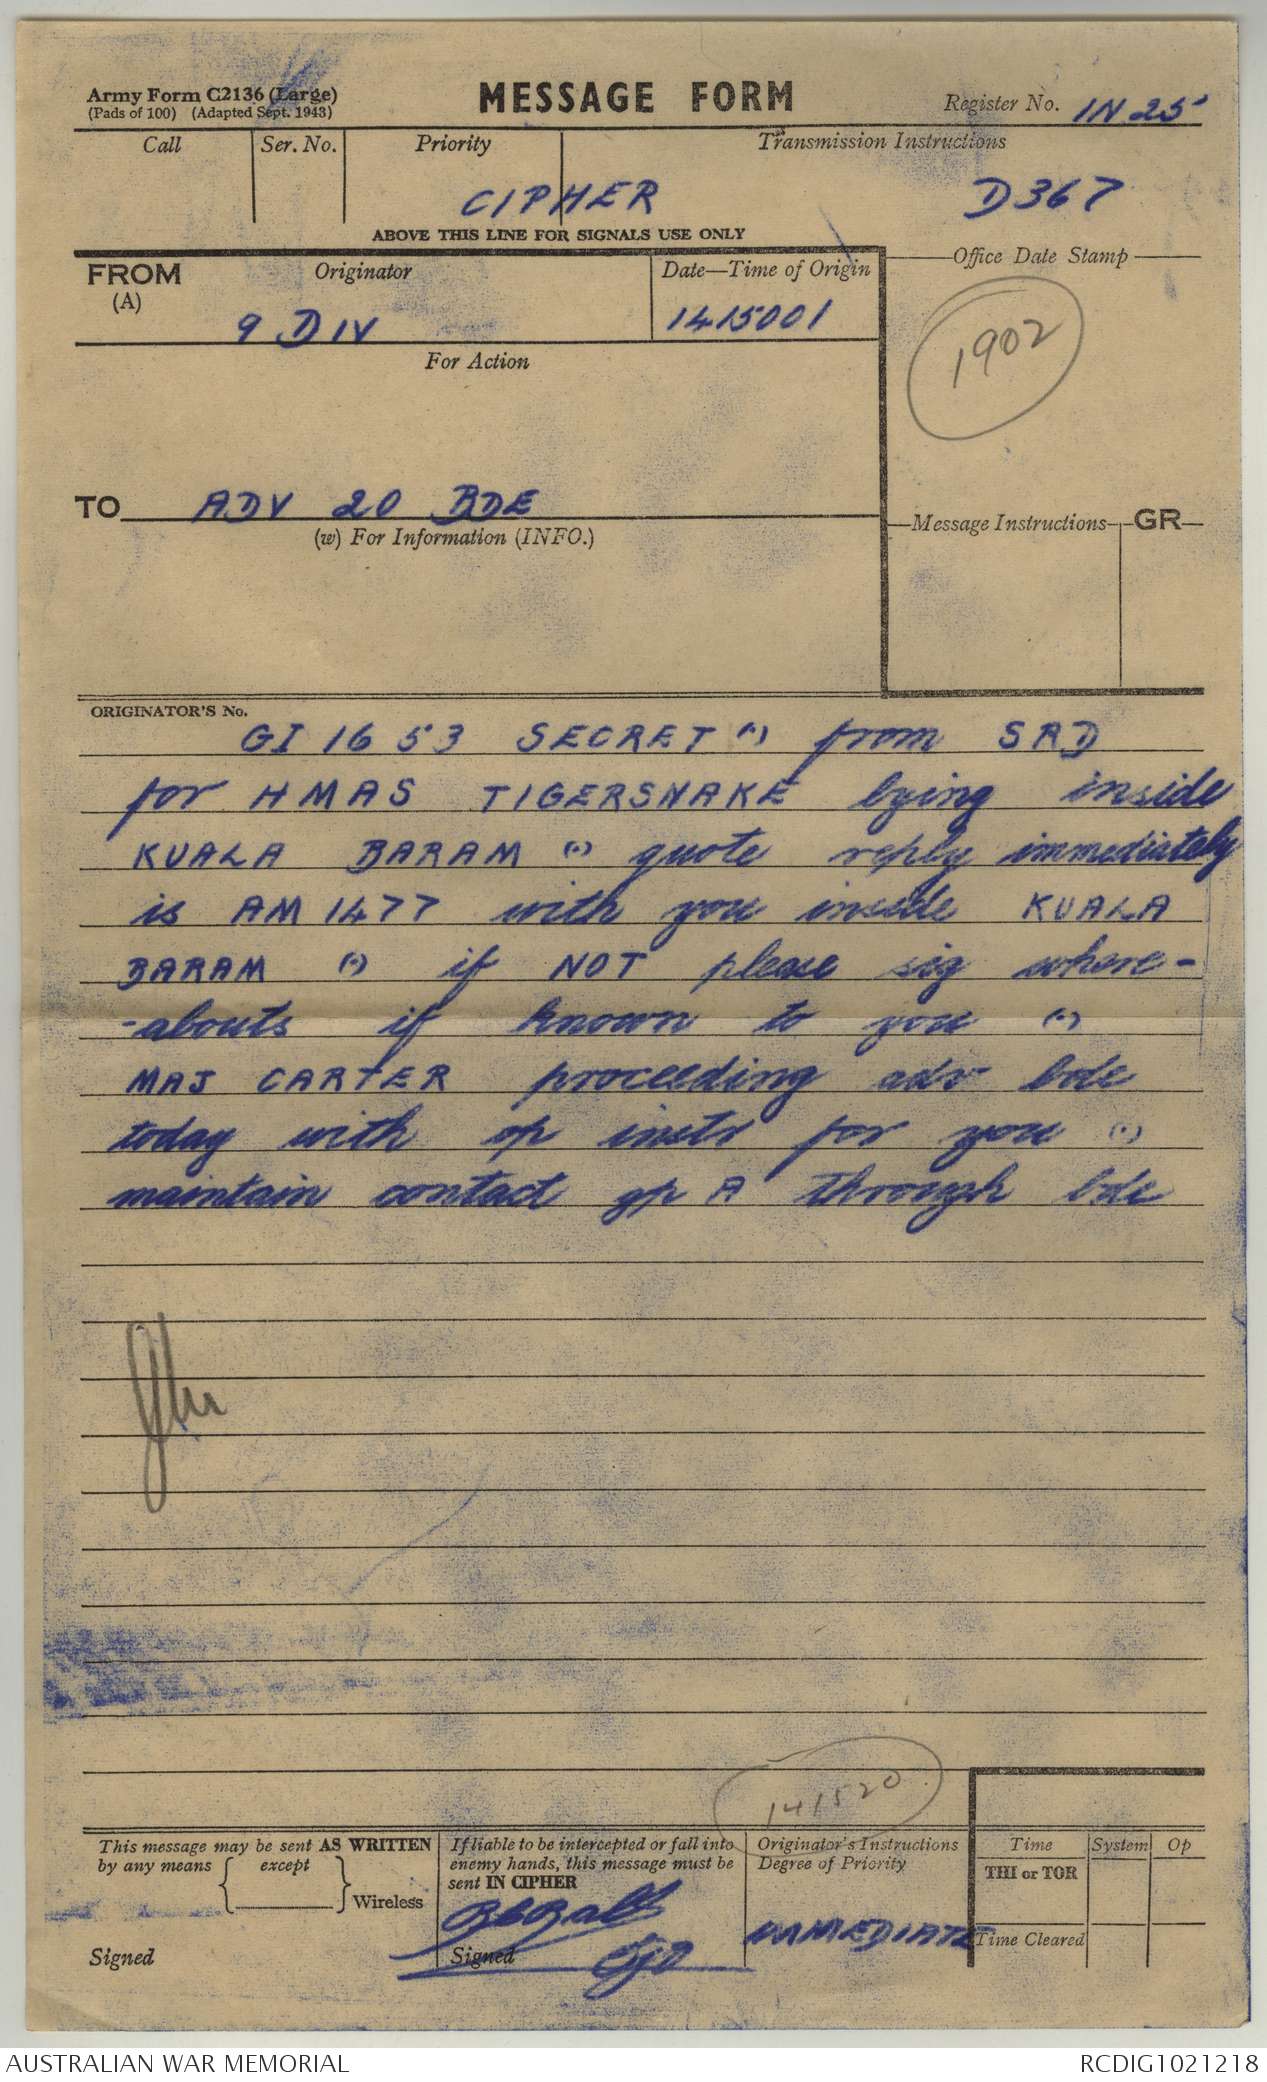 Army Form C2136 (Large)
(Pads of 100) (Adapted Sept. 1943)
MESSAGE FORM
Register No. IN 25
Call
Ser. No.
Priority
Transmission Instructions
CIPHER
D367
ABOVE THIS LINE FOR SIGNALS USE ONLY
FROM
(A)
Originator
Date—Time of Origin
Office Date Stamp
9 DIV
141500I
1902
For Action
TO ADV 20 BDE
(w) For Information (INFO.)
Message Instructions
GR
ORIGINATOR'S No.
GI 1653 SECRET (.) from SRD
for HMAS TIGERSNAKE lying inside
KUALA BARAM (.) quote reply immediately
is AM 1477 with you inside KUALA
BARAM (.) if NOT please sig where-
-abouts if known to you (.)
MAJ CARTER proceeding adv bde
today with op instr for you (.)
maintain contact gp A through bde
141520
This message may be sent AS WRITTEN
by any means
except
Wireless
Signed
If liable to be intercepted or fall into
enemy hands, this message must be
sent IN CIPHER
Signed
Originator's Instructions
Degree of Priority
IMMEDIATE
Time
System
Op
THI or TOR
Time Cleared
AUSTRALIAN WAR MEMORIAL
RCDIG1021218